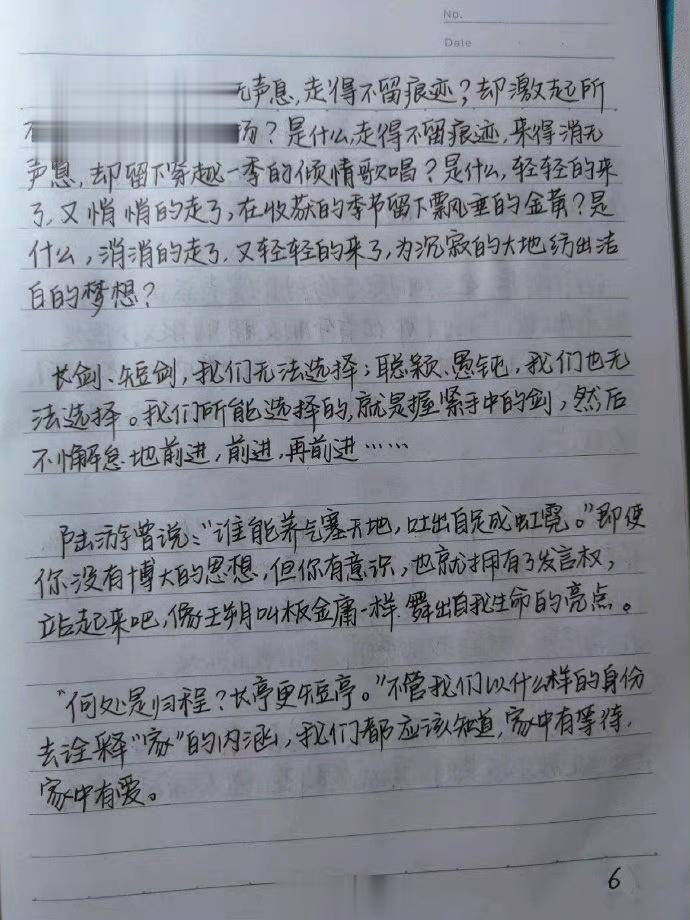 No.
Date
无声息，走得不留痕迹？却激起所
汤？是什么，走得不留痕迹，来得消无
声息，却留下穿越一季的倾情歌唱？是什么，轻轻的来
了，又悄悄的走了，在收获的季节留下飘垂的金黄？是
什么，消消的走了，又轻轻的来了，为沉寂的大地纺出洁
白的梦想？
长剑、短剑，我们无法选择；聪颖、愚钝，我们也无
法选择。我们所能选择的，就是握紧手中的剑，然后
不懈怠地前进，前进，再前进……
陆游曾说：“谁能养气塞天地，吐出自足成虹霓。”即使
你没有博大的思想，但你有意识，也就拥有了发言权，
站起来吧，像王朔叫板金庸一样.舞出自我生命的亮点。
“何处是归程？长亭更短亭。”不管我们以什么样的身份
去诠释“家”的内涵，我们都应该知道，家中有等待，
家中有爱。
6